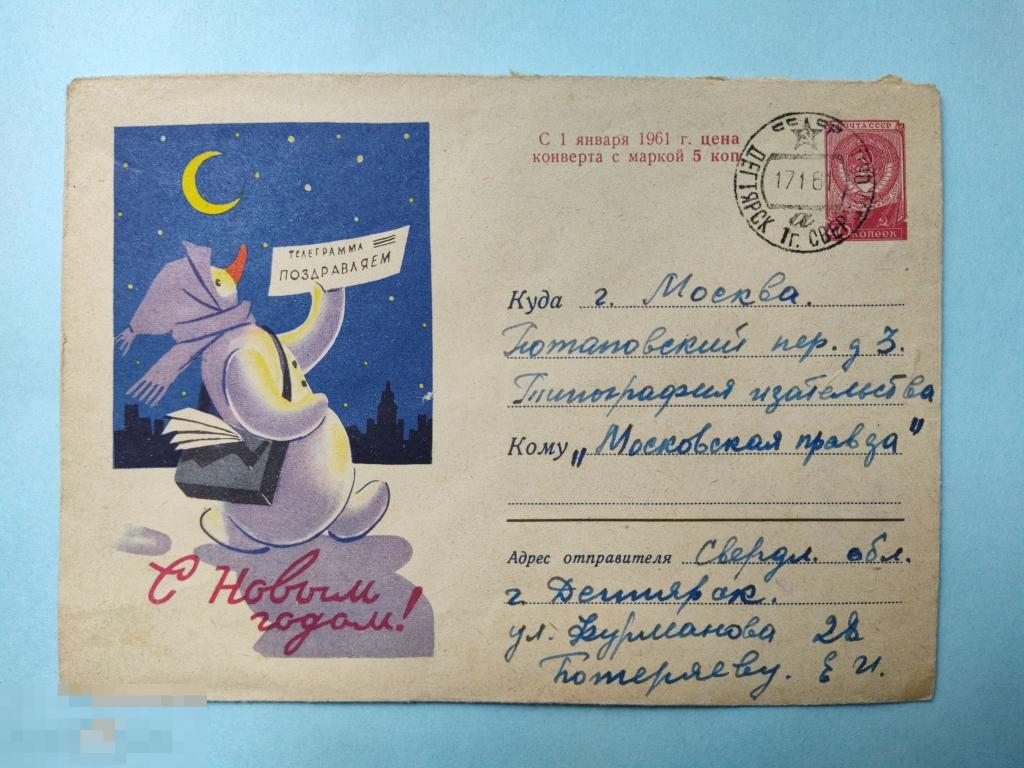 С 1 января 1961 г. цена
конверта с маркой 5 коп
ПОЧТА СССР
КОПЕЕК
ДЕГТЯРСК 1г. СВЕР
17 1 6
а
ТЕЛЕГРАММА
ПОЗДРАВЛЯЕМ
Куда г. Москва.
Потаповский пер. д 3.
Типография изательства
Кому „Московская правда"
Адрес отправителя Свердл. обл.
г. Дегтярск.
ул. Фурманова 28
Потеряеву. Е И.
С Новым
годом!